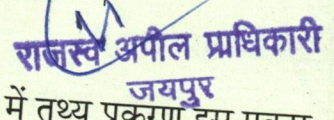 राजस्व अपील प्राधिकारी
जयपुर
में तथ्य प्रकरण इस प्रकार